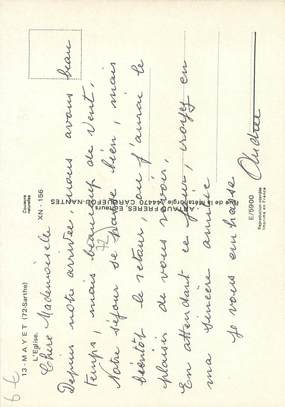 13 - MAYET (72-Sarthe)
L'Eglise.
Couleurs
naturelles
XN - 156
Chère Mademoiselle
Depuis notre arrivée, nous avons beau
temps, mais beaucoup de vent.
Notre séjour se passe bien, mais
bientôt le retour, où j'aurai le
plaisir de vous revoir.
En attendant ce jour, croyez en
ma sincère amitié
Je vous embrasse
Andrée
72
FRERES, Editeurs
de la Métairie, 44470 CARQUEFOU-NANTES
E/5900
Reproduction interdite
Imprimé en France
6 €